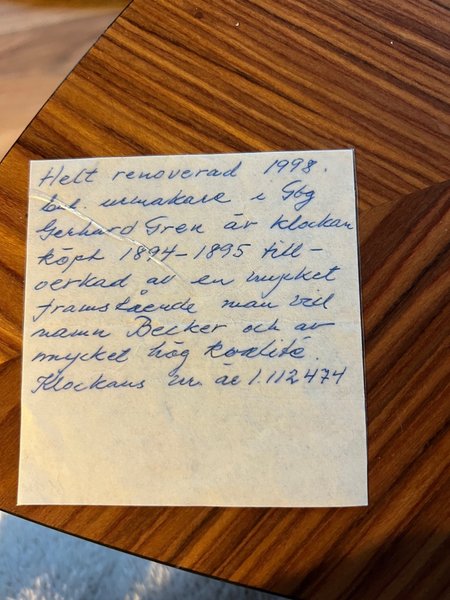 Helt renoverad 1998.
urmakare i Gbg
Gerhard Gren är klockan
köpt 1894-1895 till-
verkad av en mycket
framstående man vid
namn Becker och av
mycket hög kvalité.
Klockans nr. är 1.112474